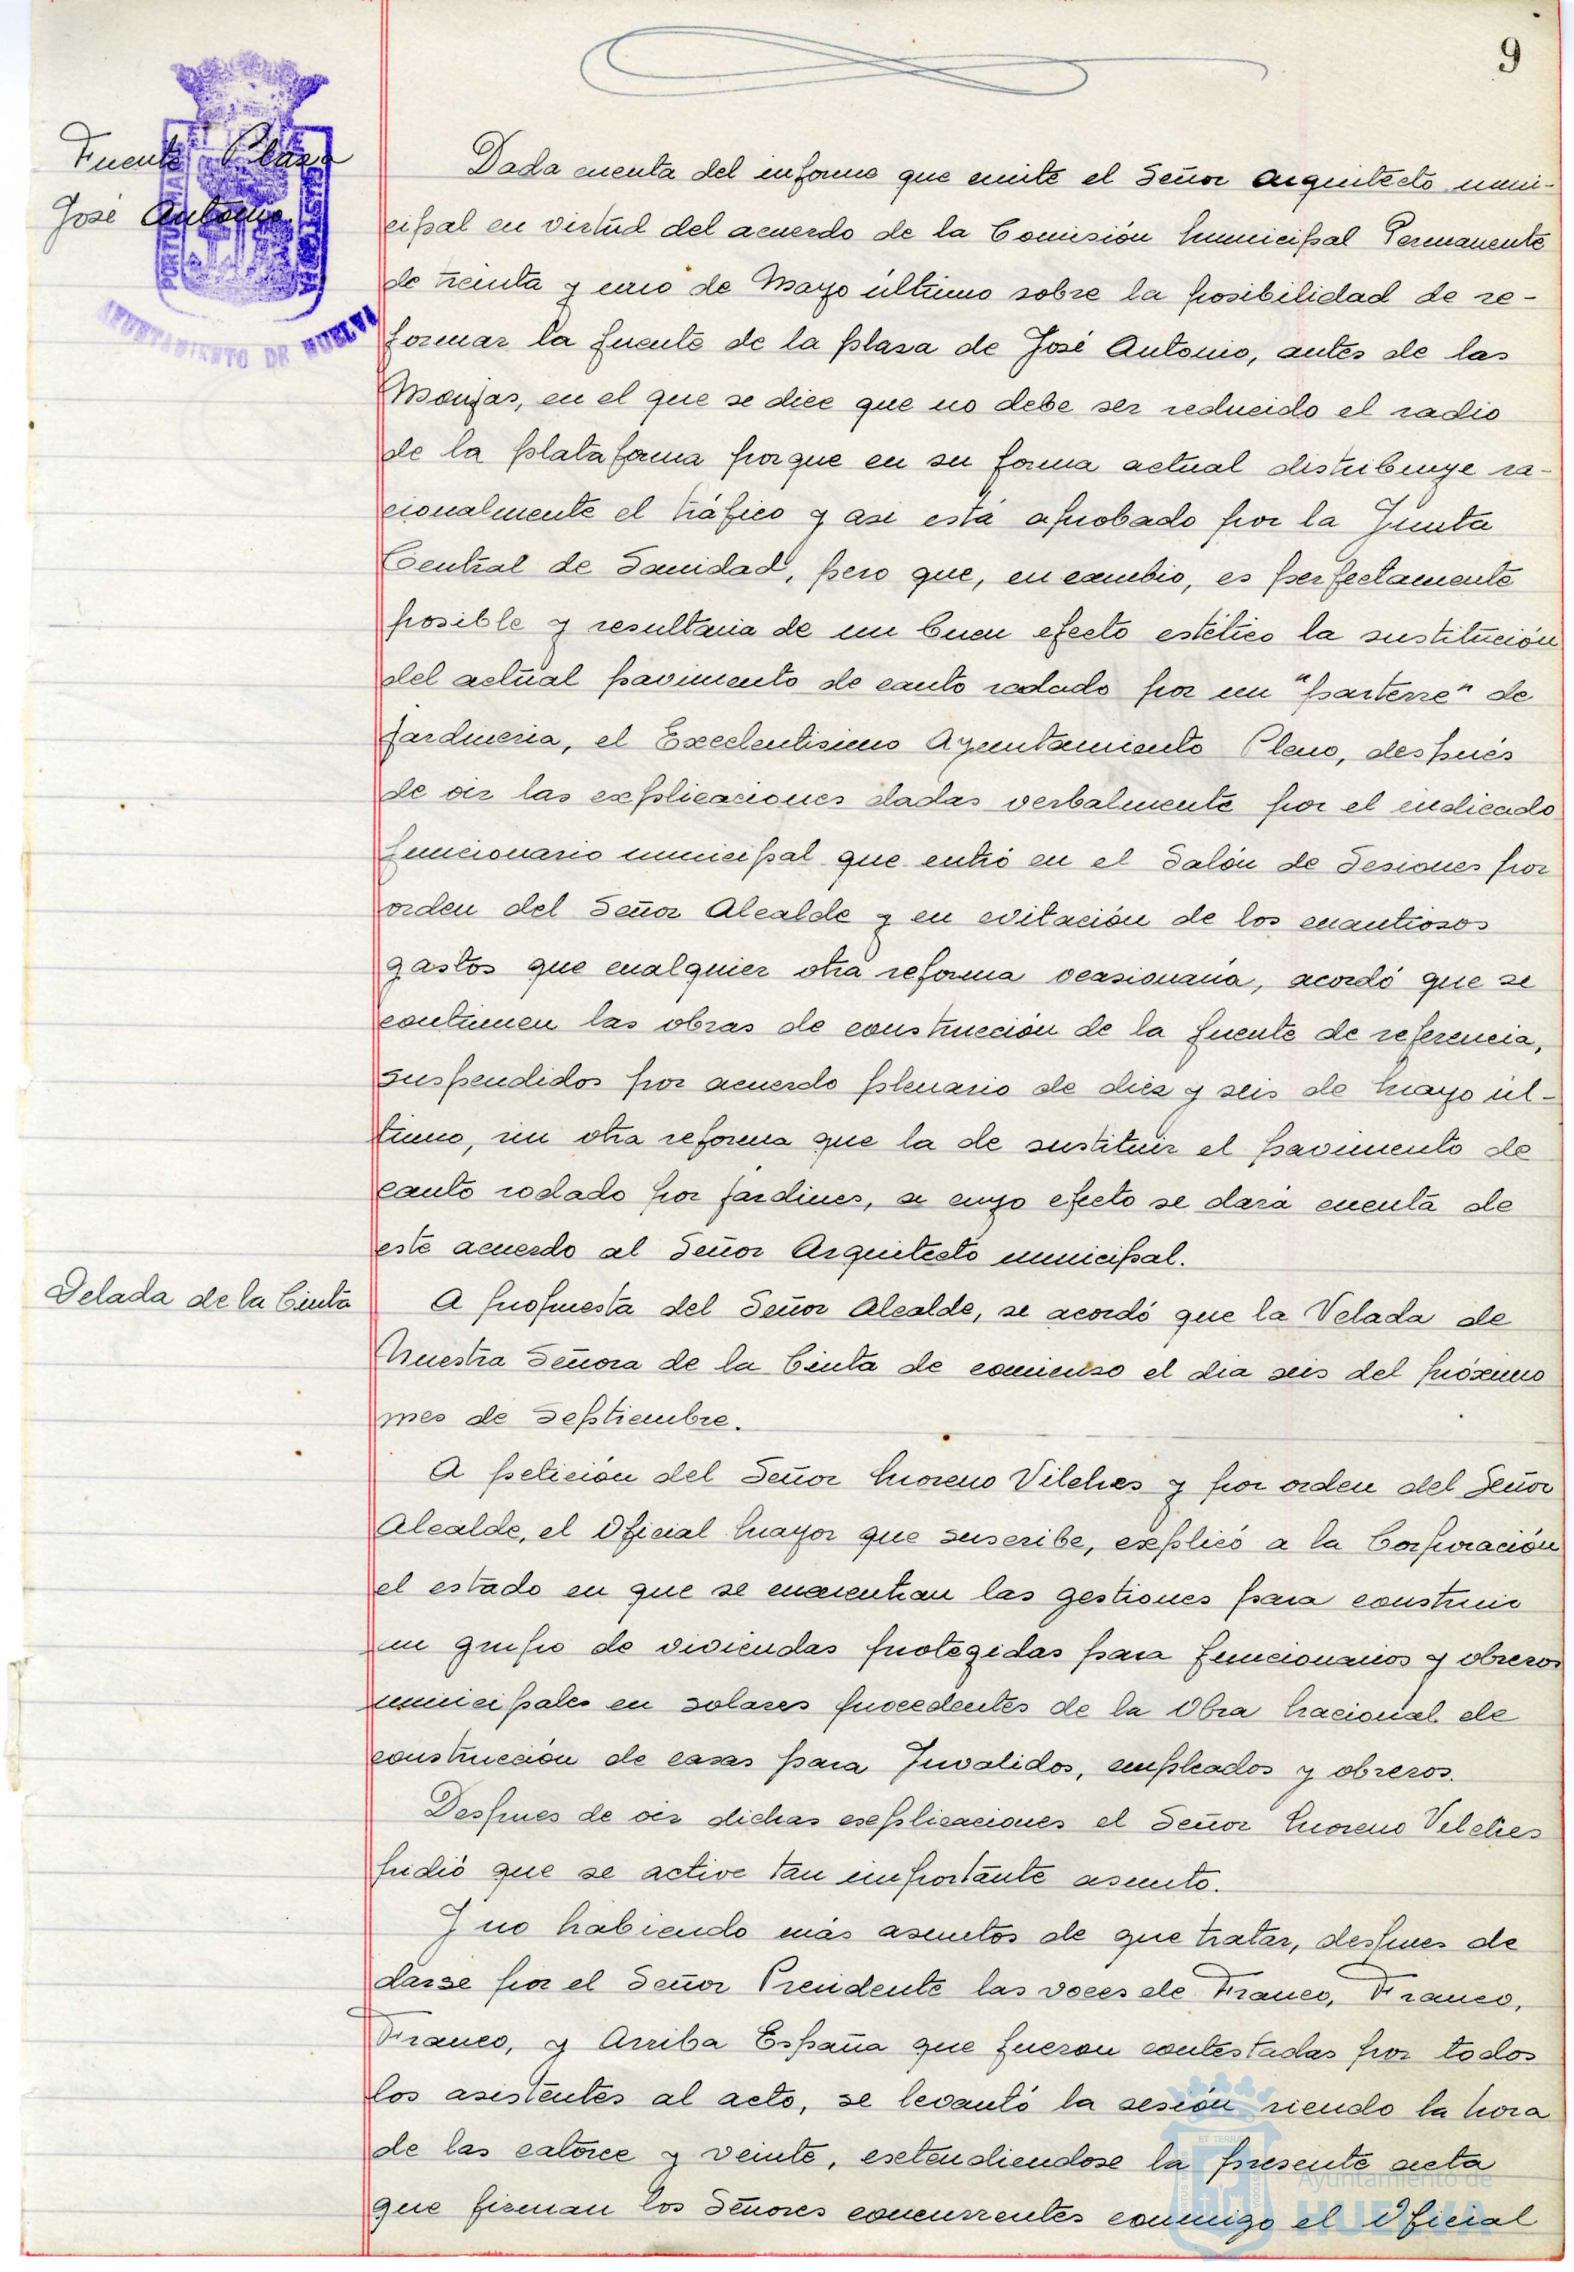 9
Fuente Plaza
José Antonio.
PORTUS MARIS
AYUNTAMIENTO DE HUELVA
Dada cuenta del informe que emite el Señor Arquitecto muni-
cipal en virtud del acuerdo de la Comisión Municipal Permanente
de treinta y uno de Mayo último sobre la posibilidad de re-
formar la fuente de la plaza de José Antonio, antes de las
Monjas, en el que se dice que no debe ser reducido el radio
de la plataforma porque en su forma actual distribuye ra-
cionalmente el tráfico y asi está aprobado por la Junta
Central de Sanidad, pero que, en cambio, es perfectamente
posible y resultaria de un buen efecto estético la sustitución
del actual pavimento de canto rodado por un "parterre" de
jardineria, el Excelentisimo Ayuntamiento Pleno, después
de oir las explicaciones dadas verbalmente por el indicado
funcionario municipal que entró en el Salón de Sesiones por
orden del Señor Alcalde y en evitación de los cuantiosos
gastos que cualquier otra reforma ocasionaria, acordó que se
continuen las obras de construcción de la fuente de referencia,
suspendidos por acuerdo plenario de diez y seis de Mayo úl-
timo, sin otra reforma que la de sustituir el pavimento de
canto rodado por jardines, a cuyo efecto se dará cuenta de
este acuerdo al Señor Arquitecto municipal.
Velada de la Cinta
A propuesta del Señor Alcalde, se acordó que la Velada de
Nuestra Señora de la Cinta de comienzo el dia seis del próximo
mes de Septiembre.
A petición del Señor Moreno Vilches y por orden del Señor
Alcalde, el Oficial Mayor que suscribe, explicó a la Corporación
el estado en que se encuentran las gestiones para construir
un grupo de viviendas protegidas para funcionarios y obreros
municipales en solares procedentes de la Obra Nacional de
construcción de casas para Invalidos, empleados y obreros.
Despues de oir dichas explicaciones el Señor Moreno Vilches
pidió que se active tan importante asunto.
Y no habiendo más asuntos de que tratar, despues de
darse por el Señor Presidente las voces de Franco, Franco,
Franco, y Arriba España que fueron contestadas por todos
los asistentes al acto, se levantó la sesión siendo la hora
de las catorce y veinte, extendiendose la presente acta
que firman los Señores concurrentes conmigo el Oficial
Ayuntamiento de
HUELVA